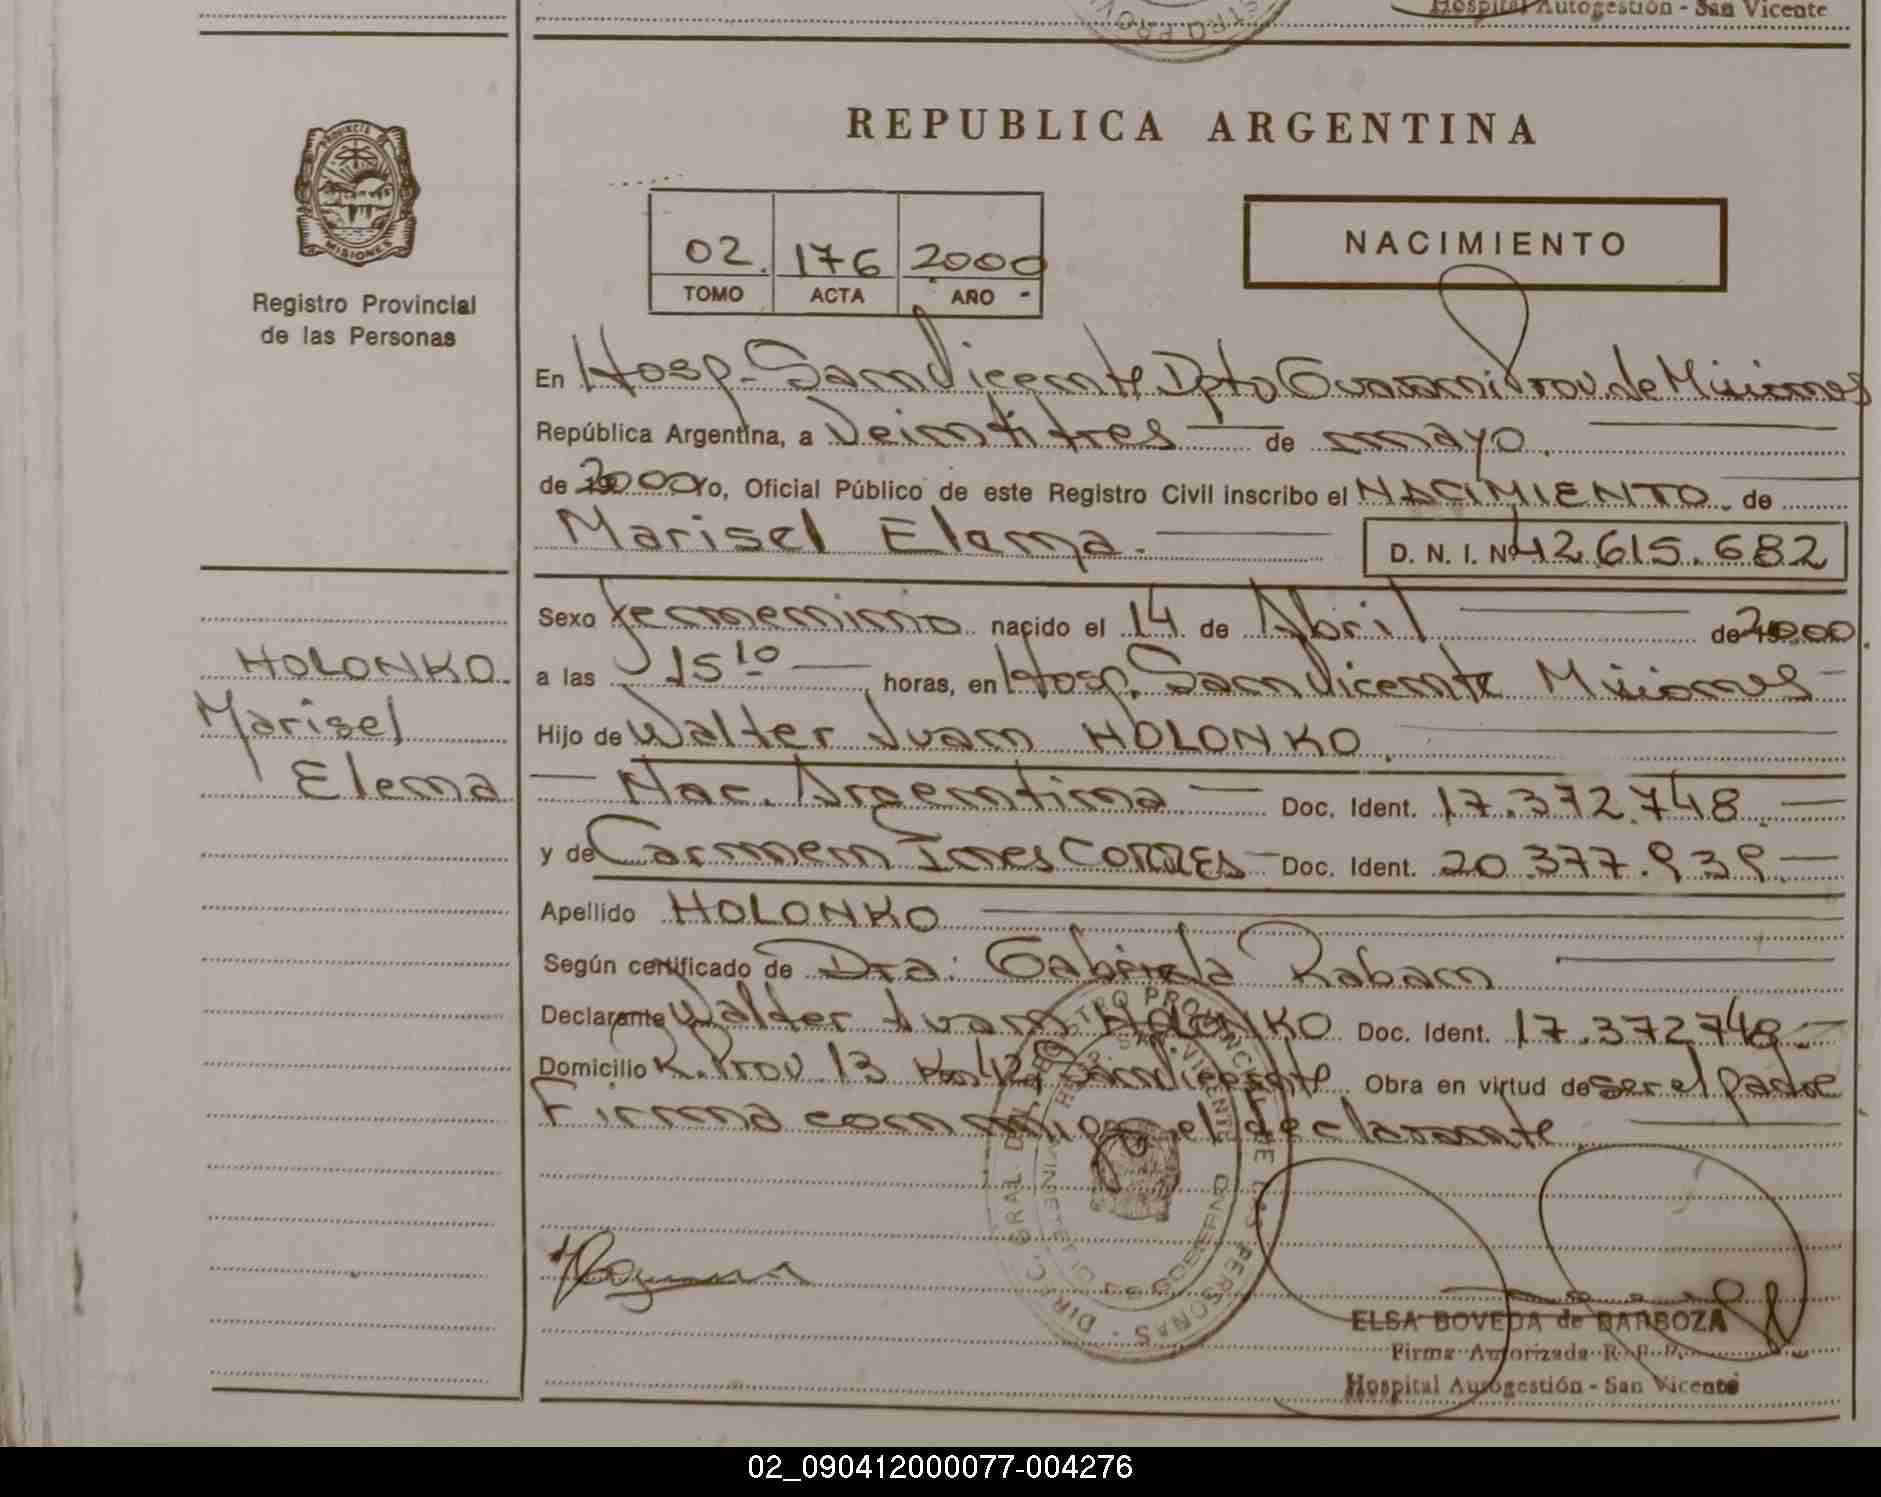 Hospital Autogestión - San Vicente
REPUBLICA ARGENTINA
PROVINCIA
MISIONES
Registro Provincial
de las Personas
02. 176 2000
TOMO ACTA AÑO -
NACIMIENTO
En Hosp. San Vicente Dpto Guarani Prov. de Misiones
República Argentina, a Veintitres de mayo.
de 2000 Yo, Oficial Público de este Registro Civil inscribo el NACIMIENTO. de
Marisel Elena. D. N. I. Nº 42.615.682
Sexo femenino nacido el 14 de Abril de 2000.
a las 15 10 horas, en Hosp. San Vicente Misiones
Hijo de Walter Juan HOLONKO.
Nac. Argentina Doc. Ident. 17.372.748.
y de Carmen Ines CORRES Doc. Ident. 20.377.939.
Apellido HOLONKO
Según certificado de Dra: Gabriela Raban
Declarante Walter Juan HOLONKO Doc. Ident. 17.372748.
Domicilio R. Prov 13 Km San Vicente Obra en virtud de ser el padre
Firma conmigo el declarante.
HOLONKO.
Marisel
Elena
ELSA BOVEDA de BARBOZA
Firma Autorizada R. P. P.
Hospital Autogestión - San Vicente
DIREC. GRAL. DEL REGISTRO PROVINCIAL DE LAS PERSONAS
HOSP. SAN VICENTE
MINISTERIO DE GOBIERNO
02_090412000077-004276